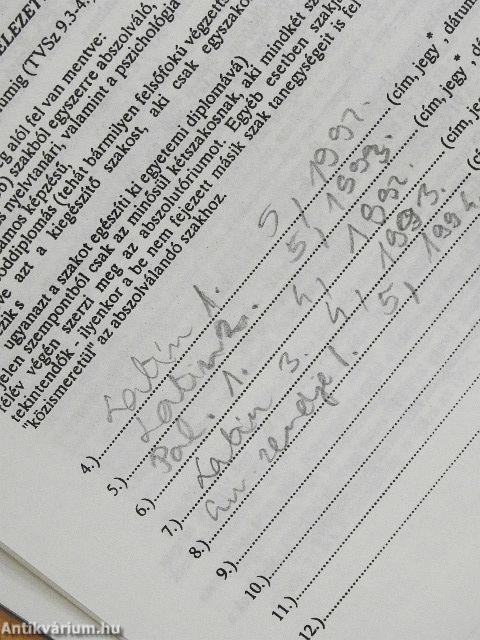 ELEZET
umig (TVSz 9.3-4.
g alól fel van mentve:
ó) szakból egyszerre abszolváló,
s nyelvtanári, valamint a pszichológia
amos képzésű,
oddiplomás (tehát bármilyen felsőfokú végzetts
ve azt a kiegészítő szakost, aki csak egyszakos
zik s
ugyanazt a szakot egészíti ki egyetemi diplomává)
elen szempontból csak az minősül kétszakosnak, aki mindkét sz
félév végén szerzi meg az abszolutóriumot. Egyéb esetben szakj
tekintendők - ilyenkor a be nem fejezett másik szak tanegységeit is fel
"közismeretül" az abszolválandó szakhoz
4.) Latin 1. 5, 1992. (cím, jegy *, dátum
5.) Latin 2. 5, 1993. (cím, jegy *, d
6.) Pal. 1. 4, 1992. (cím, jegy
7.) Latin 3. 4, 1993. (cím, je
8.) 1. 5, 1994. (c
9.)
10.)
11.)
12.)
Antikvárium.hu